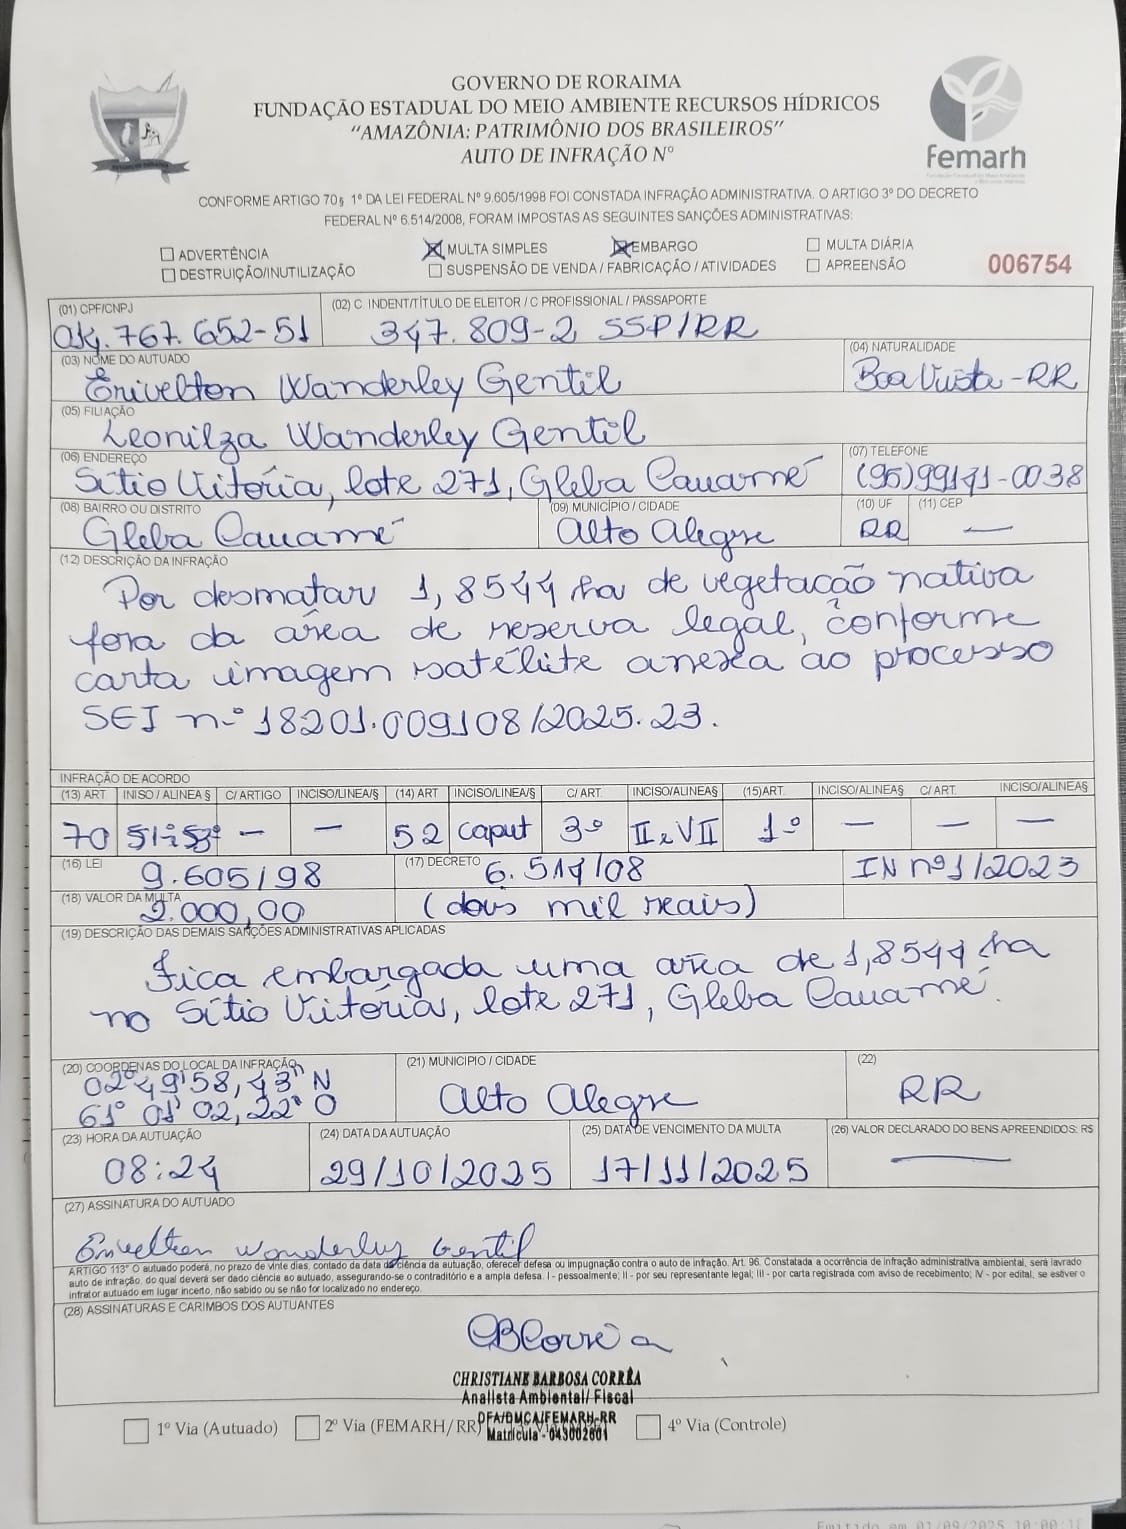 GOVERNO DE RORAIMA
FUNDAÇÃO ESTADUAL DO MEIO AMBIENTE RECURSOS HÍDRICOS
"AMAZÔNIA: PATRIMÔNIO DOS BRASILEIROS"
AUTO DE INFRAÇÃO Nº
Femarh
CONFORME ARTIGO 70§ 1º DA LEI FEDERAL Nº 9.605/1998 FOI CONSTADA INFRAÇÃO ADMINISTRATIVA. O ARTIGO 3º DO DECRETO
FEDERAL Nº 6.514/2008, FORAM IMPOSTAS AS SEGUINTES SANÇÕES ADMINISTRATIVAS:
ADVERTÊNCIA MULTA SIMPLES EMBARGO MULTA DIÁRIA
DESTRUIÇÃO/INUTILIZAÇÃO SUSPENSÃO DE VENDA / FABRICAÇÃO / ATIVIDADES APREENSÃO 006754
(01) CPF/CNPJ (02) C INDENT/TÍTULO DE ELEITOR / C PROFISSIONAL / PASSAPORTE
767.652-51 347.809-2 SSP/RR
(03) NOME DO AUTUADO (04) NATURALIDADE
Erivelton Wanderley Gentil Boa Vista-RR
(05) FILIAÇÃO
Leonilza Wanderley Gentil
(06) ENDEREÇO (07) TELEFONE
Sítio Vitória, lote 271, Gleba Cauamé (95)99171-0038
(08) BAIRRO OU DISTRITO (09) MUNICÍPIO / CIDADE (10) UF (11) CEP
Gleba Cauamé Alto Alegre RR —
(12) DESCRIÇÃO DA INFRAÇÃO
Por desmatar 1,8544 ha de vegetação nativa
fora da área de reserva legal, conforme
carta imagem satélite anexa ao processo
SEI n.º 18201.009108/2025.23.
INFRAÇÃO DE ACORDO
(13) ART INISO / ALINEA § C/ ARTIGO INCISO/LINEA/§ (14) ART INCISO/LINEA/§ C/ ART. INCISO/ALINEA§ (15)ART. INCISO/ALINEA§ C/ ART. INCISO/ALINEA§
70 — — 52 caput 3º II e VII 1º — — —
(16) LEI (17) DECRETO
9.605/98 6.514/08 IN nº1/2023
(18) VALOR DA MULTA
2.000,00 (dois mil reais)
(19) DESCRIÇÃO DAS DEMAIS SANÇÕES ADMINISTRATIVAS APLICADAS
Fica embargada uma área de 1,8544 ha
no Sítio Vitória, lote 271, Gleba Cauamé.
(20) COORDENAS DO LOCAL DA INFRAÇÃO (21) MUNICIPIO / CIDADE (22)
02º49'58,43" N Alto Alegre RR
61º 01' 02,22" O
(23) HORA DA AUTUAÇÃO (24) DATA DA AUTUAÇÃO (25) DATA DE VENCIMENTO DA MULTA (26) VALOR DECLARADO DO BENS APREENDIDOS: R$
08:24 29/10/2025 17/11/2025 —
(27) ASSINATURA DO AUTUADO
Erivelton Wanderley Gentil
ARTIGO 113º O autuado poderá, no prazo de vinte dias, contado da data da ciência da autuação, oferecer defesa ou impugnação contra o auto de infração. Art. 96. Constatada a ocorrência de infração administrativa ambiental, será lavrado
auto de infração, do qual deverá ser dado ciência ao autuado, assegurando-se o contraditório e a ampla defesa. I - pessoalmente; II - por seu representante legal; III - por carta registrada com aviso de recebimento; IV - por edital, se estiver o
infrator autuado em lugar incerto, não sabido ou se não for localizado no endereço.
(28) ASSINATURAS E CARIMBOS DOS AUTUANTES
CBCorrêa
CHRISTIANE BARBOSA CORRÊA
Analista Ambiental/ Fiscal
DFA/DMCA/FEMARH-RR
Matrícula - 043002601
1º Via (Autuado) 2º Via (FEMARH/RR) 4º Via (Controle)
Emitido em 01/09/2025